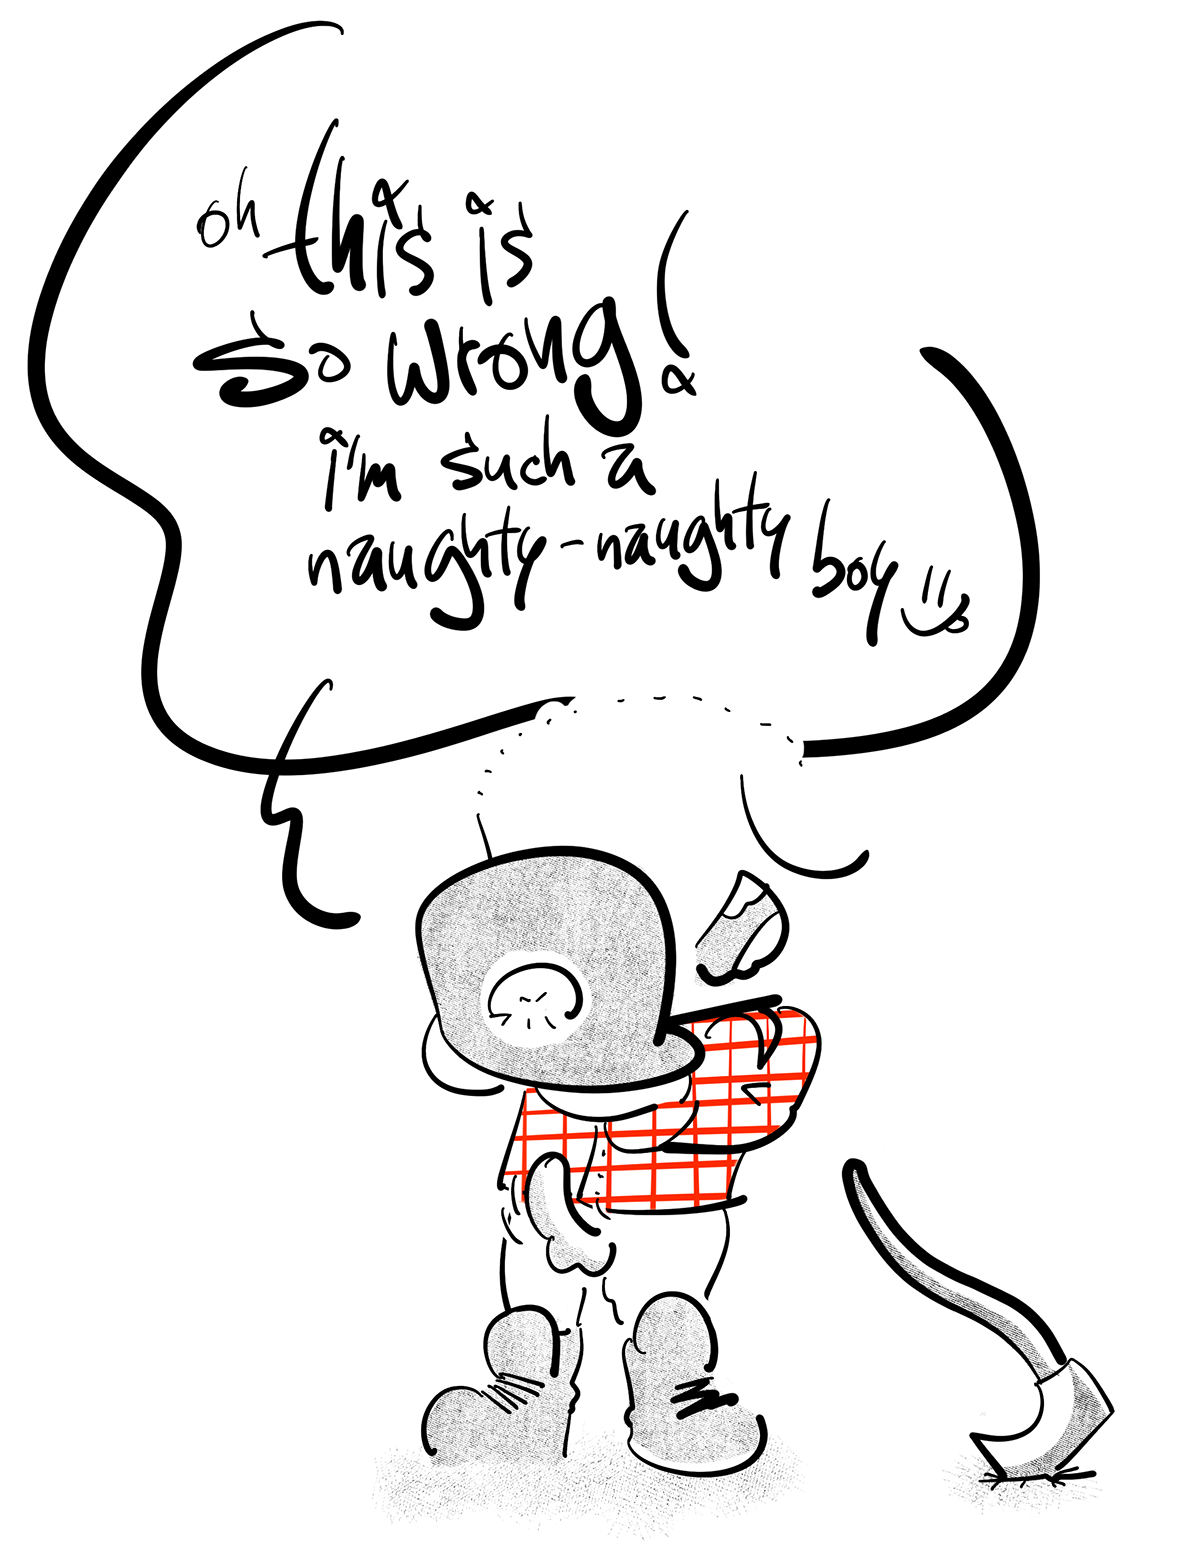 oh this is
so wrong!
i'm such a
naughty-naughty boy